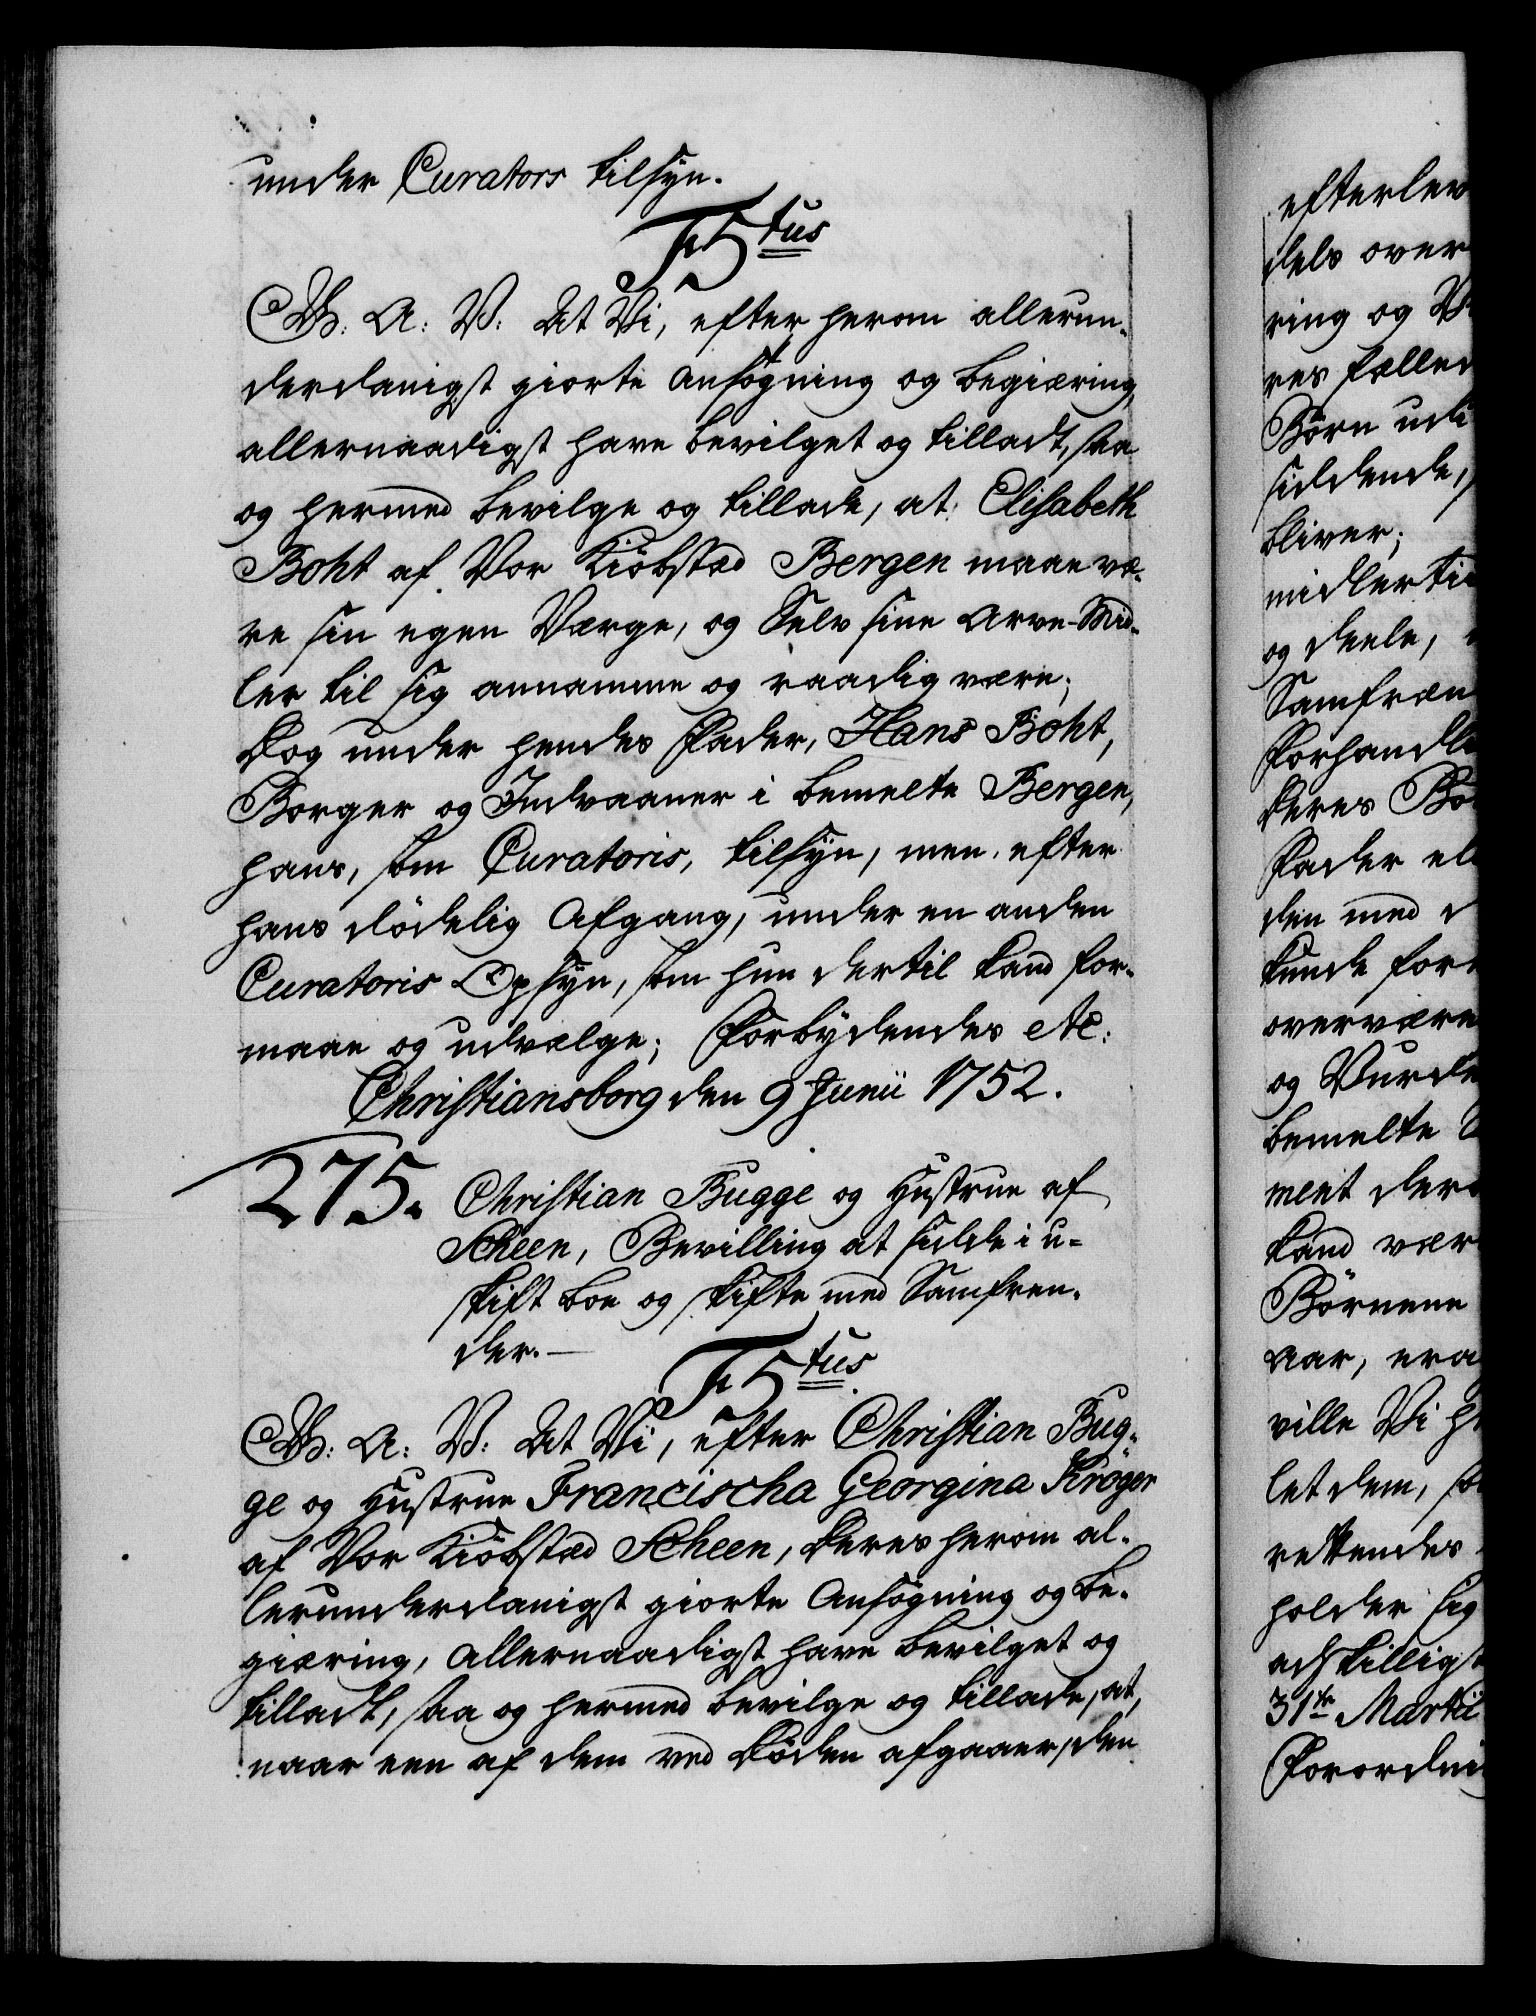 under Curators tilsyn.
F5tus
G: A: V: At Vi, efter herom allerun-
derdanigst giorte Ansøgning og begiæring,
allernaadigst have bevilget og tilladt, saa
og hermed bevilge og tillade, at Elisabeth
Boht af Vor Kiøbstad Bergen maae væ-
re sin egen Værge, og Selv sine Arve-Mid-
ler til sig annamme og raadig være;
Dog under hendes Fader, Hans Boht,
Borger og Indvaaner i bemelte Bergen,
hans, som Curatoris, tilsyn, men efter
hans dødelig Afgang, under en anden
Curatoris Opsyn, som hun dertil kand for-
maae og udvælge; Forbydendes etc:
Christiansborg den 9 Junii 1752.
275. Christian Bugge og Hustrue af
Scheen, Bevilling at sidde i u-
skift boe og skifte med Samfren-
der.—
F5tus
G: A: V: At Vi, efter Christian Bug-
ge og Hustrue Francischa Georgina Krøger
af Vor Kiøbstad Scheen, deres herom al-
lerunderdanigst giorte Ansøgning og be-
giæring, Allernaadigst have bevilget og
tilladt, saa og hermed bevilge og tillade, at,
naar een af dem ved Døden afgaaer, den
efterlev
dels over
ring og
res fælled
Børn udi
siddende,
bliver;
midlertid
og deele,
Samfræn
Forhandl
deres
Fader
den med
kunde for
overvære
og Vurde
bemelte
ment der
kand vær
Børnene
Aar,
ville Vi
let dem,
rettendes
holder sig
ach tilligst
31te Martii
Forordni